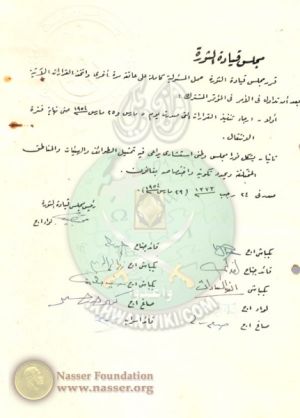 مجلس قيادة الثورة
قرر مجلس قيادة الثورة حمل المسئولية كاملة على عاتقه مرة أخرى واتخذ القرارات الآتية
بعد أن تداول في الأمر في المؤتمر المشترك :
أولا - ارجاء تنفيذ القرارات التى صدرت يوم ٥ مارس و ٢٥ مارس ١٩٥٤ حتى نهاية فترة
الانتقال .
ثانيا - يشكل فورا مجلس وطنى استشارى يراعى فيه تمثيل الطوائف والهيئات والمناطق
المختلفة ويحدد تكوينه واختصاصه بقانون .
صدر فى ٢٤ رجب ١٣٧٣ ( ٢٩ مارس ١٩٥٤ ) .
رئيس مجلس قيادة الثورة
لواء اح
بكباشى اح
قائد جناح
قائد جناح
بكباشى اح
بكباشى
بكباشى اح
لواء اح
صاغ اح
صاغ اح
قائد اسراب
IKHWANWIKI.COM
Nasser Foundation
www.nasser.org